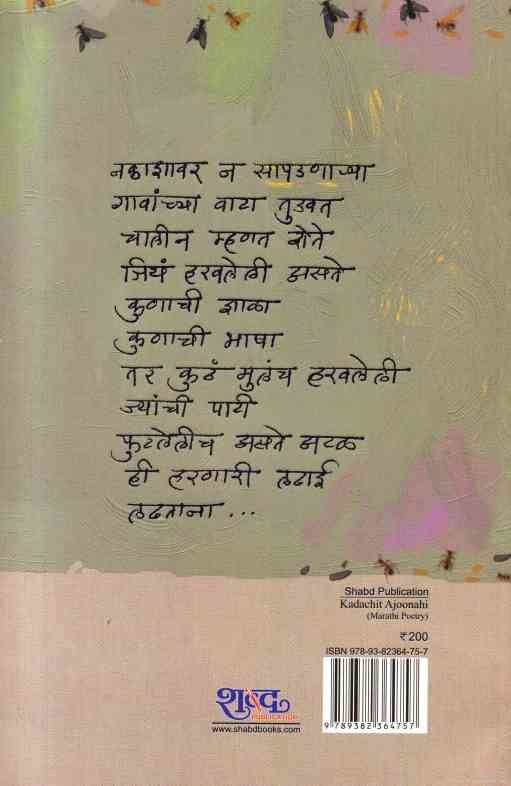 नकाशावर न सापडणाऱ्या
गावांच्या वाटा तुडवत
चालीन म्हणत होते
जिथं हरवलेली असते
कुणाची शाळा
कुणाची भाषा
तर कुठं मुलंच हरवलेली
ज्यांची पाटी
फुटलेलीच असते अटळ
ही हरणारी लढाई
लढताना...
Shabd Publication
Kadachit Ajoonahi
(Marathi Poetry)
₹200
ISBN 978-93-82364-75-7
9 789382 364757
शब्द
PUBLICATION
www.shabdbooks.com